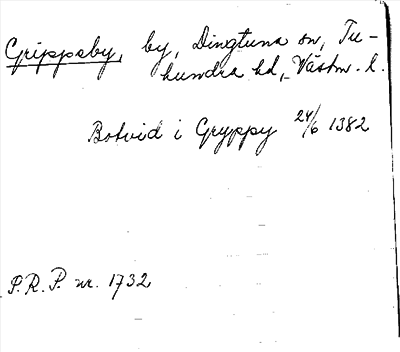 Grippsby, by, Dingtuna sn, Tu-
hundra hd, Västm. l.
Botvid i Gryppy 24/6 1382
P.R.P. nr. 1732